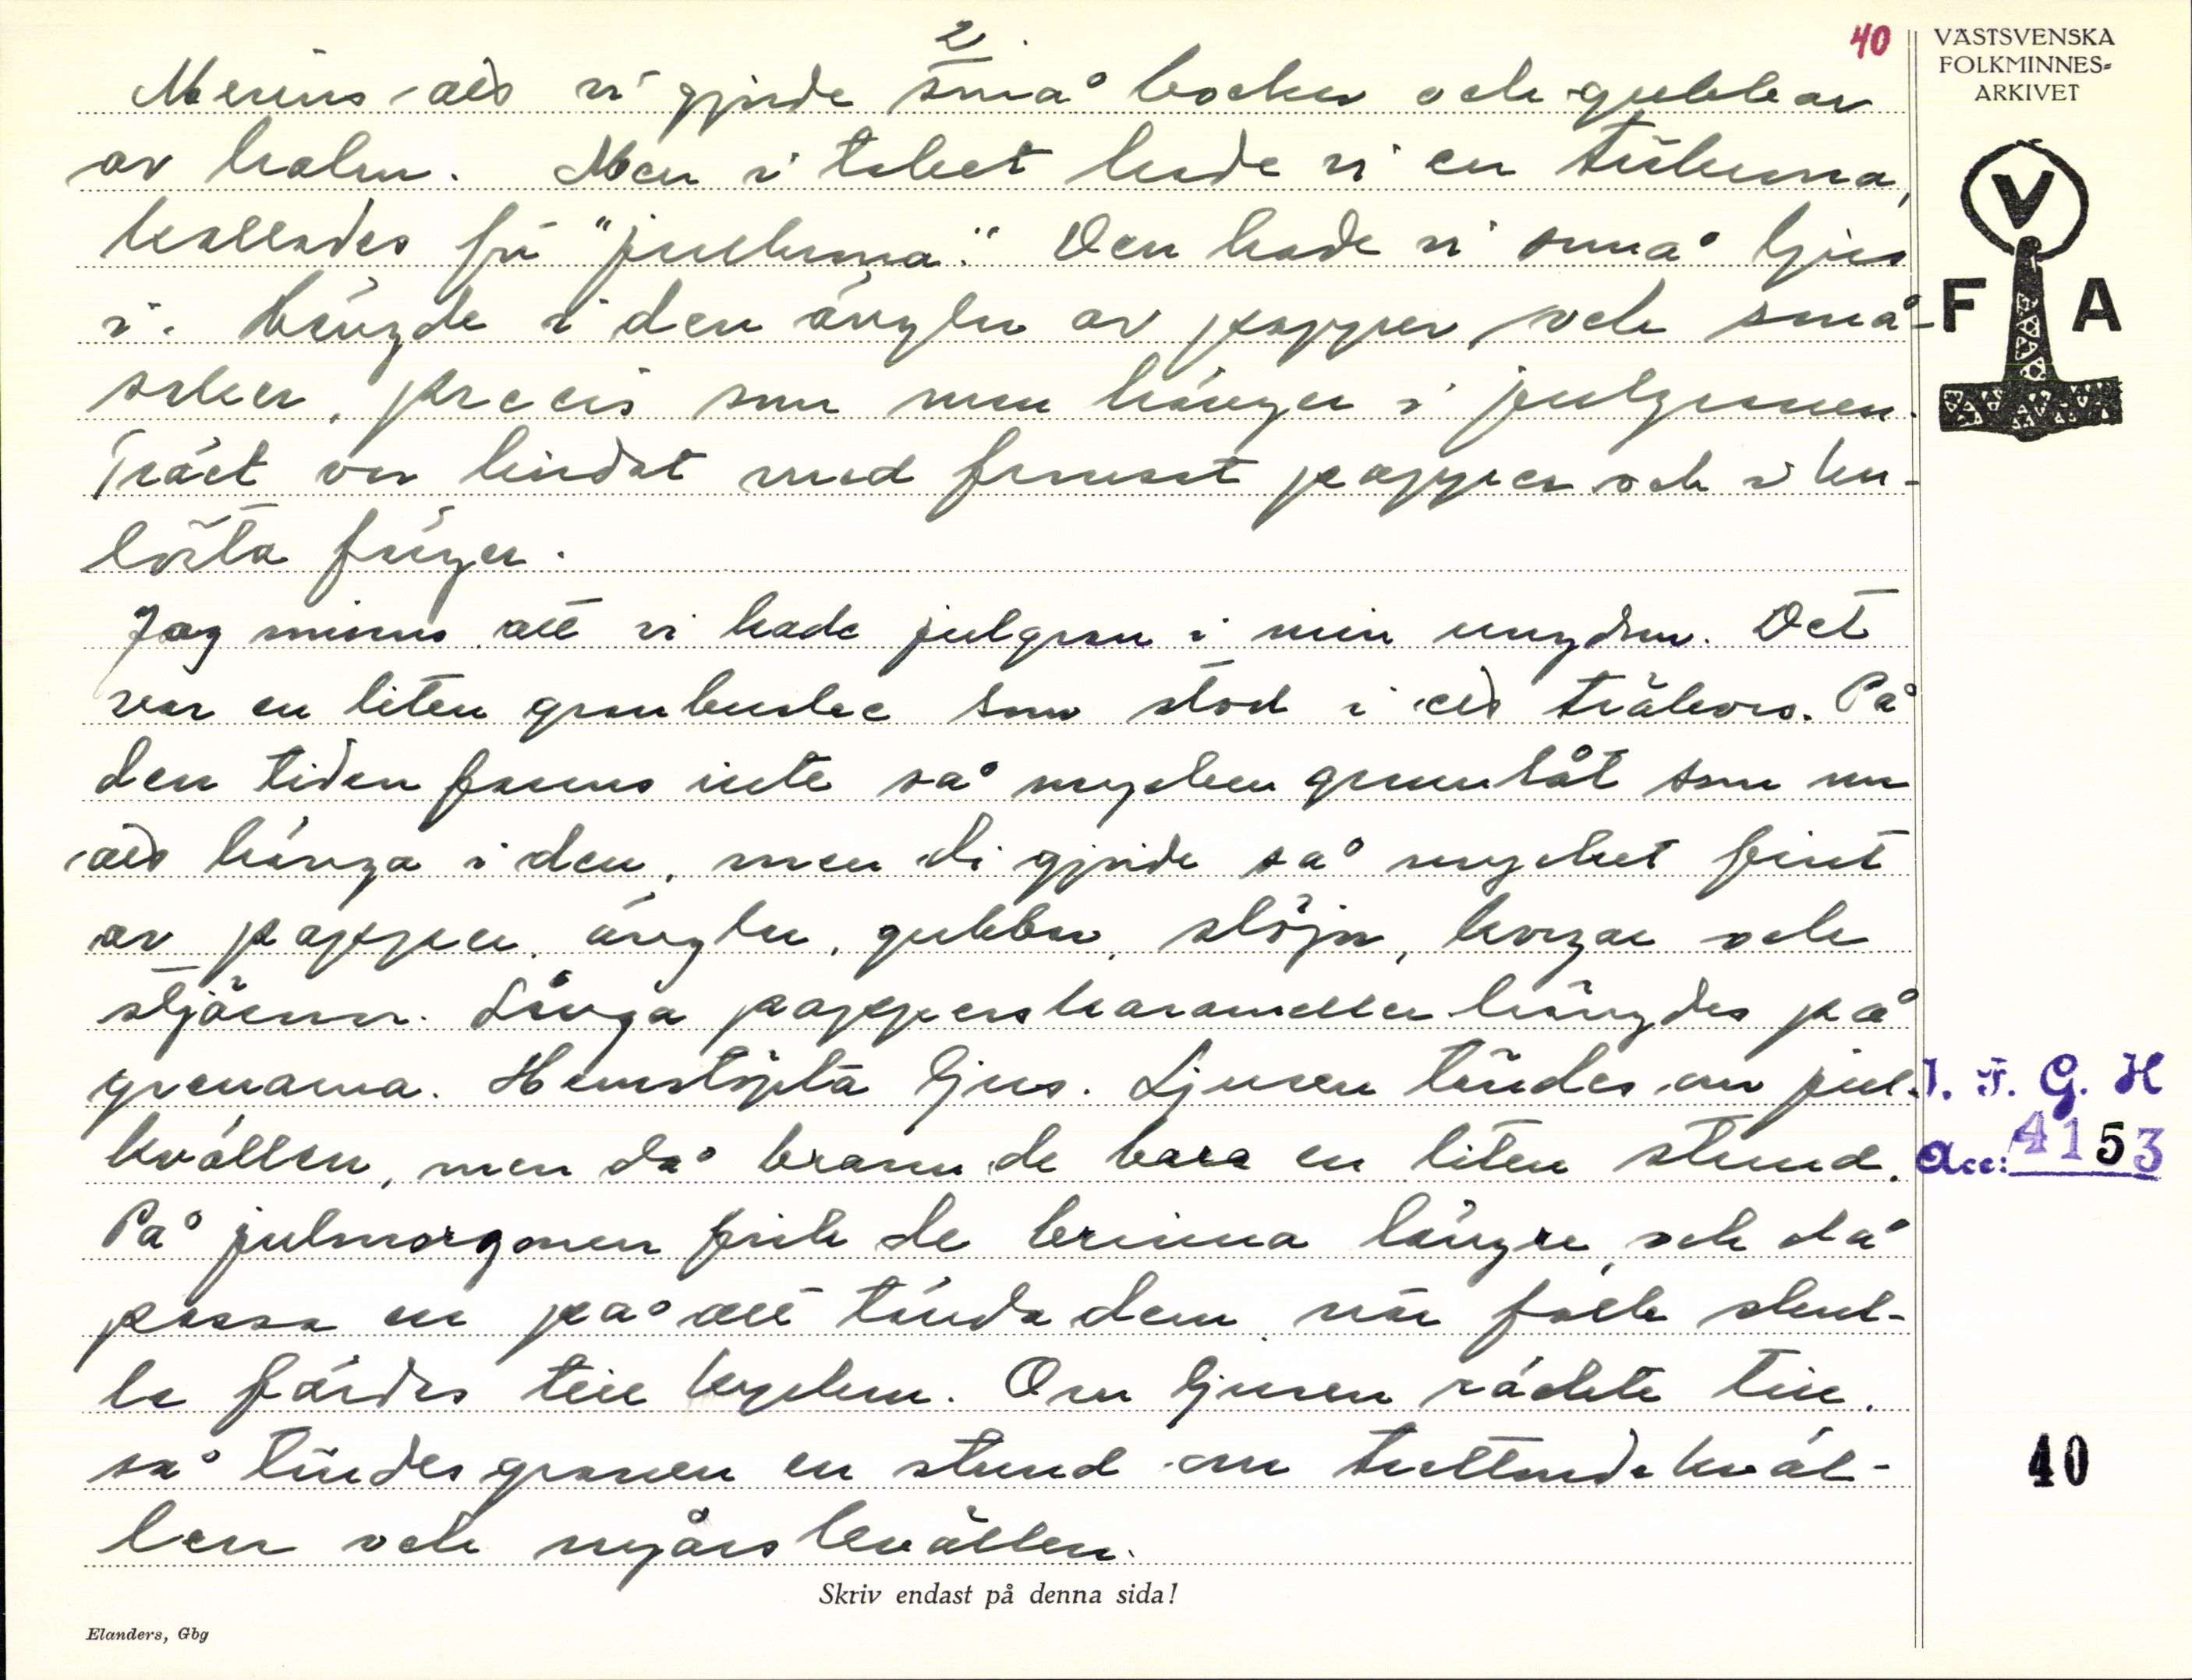 2
40
VÄSTSVENSKA
FOLKMINNES-
ARKIVET
Minns att vi gjorde små bockar och gubbar
av halm. Men i taket hade vi en
kallades för "julkrona". Den hade vi små ljus
i. Hängde i den änglar av papper, och små-
saker, precis som man hänger i julgranen.
Trået var lindat med fransat papper och i ku-
lörta färger.
Jag minns att vi hade julgran i min ungdom. Det
var en liten granbuske som stod i ett träkors. På
den tiden fanns inte så mycken grannlåt som nu
att hänga i den, men di gjorde så mycket fint
av papper, änglar, gubbar, slöjor, korgar och
stjärnor. Långa papperskarameller hängdes på
grenarna. Hemstöpta ljus. Ljusen tändes om jul-
kvällen, men då brann de bara en liten stund.
På julmorgonen fick de brinna längre, och då
passa en på att tända dem, när folk skul-
le färdas till kyrkan. Om ljusen räckte till,
så tändes granen en stund om trettondekväl-
len och nyårskvällen.
V
F A
I. F. G. H
Acc: 4153
40
Skriv endast på denna sida!
Elanders, Gbg